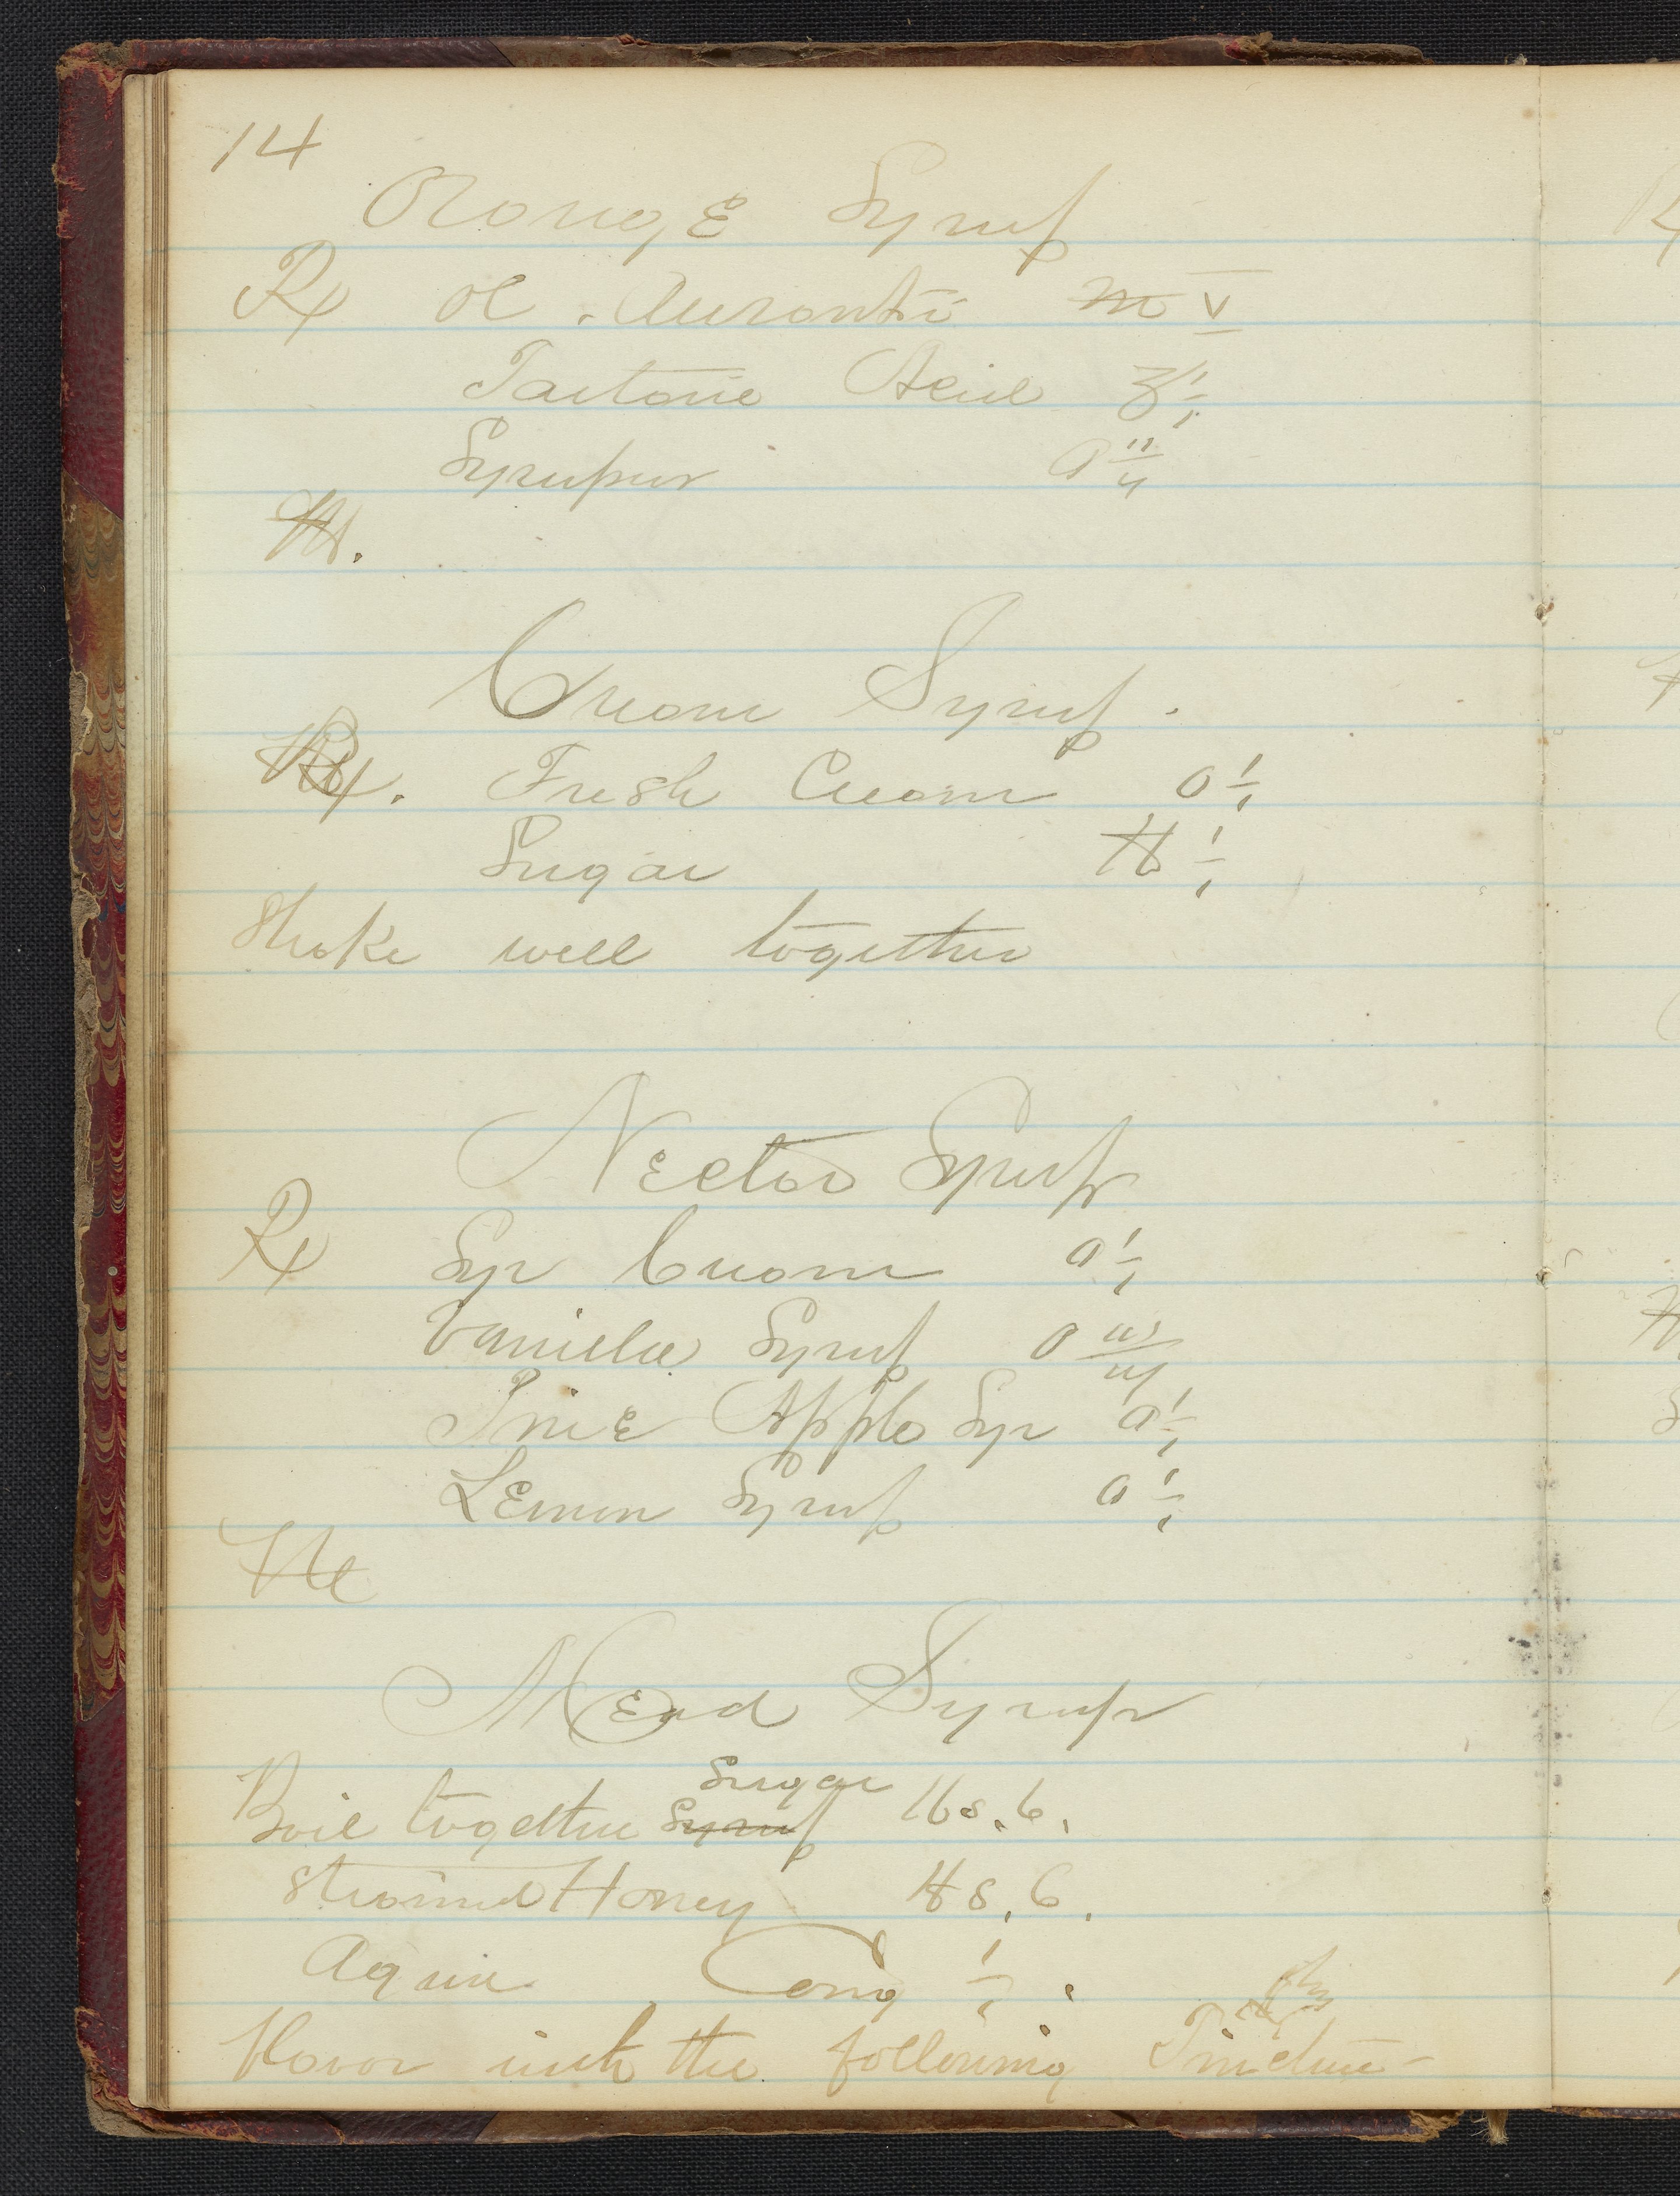 14
Orange Syrup
℞ Ol. Aurantii ♏ V
Tartaric Acid ʒi
Syrupus O ii
M.
Cream Syrup.
℞. Fresh Cream O i
Sugar ℔ i
Shake well together
Nectar Syrup
℞ Syr Cream O i
Vanilla Syrup O iii
Pine Apple Syr O i
Lemon Syrup O i
M
Mead Syrup
Sugar
Boil together Syrup lbs. 6.
Strained Honey ℔s. 6.
Aquae Cong i.
Flavor with the following Tincture